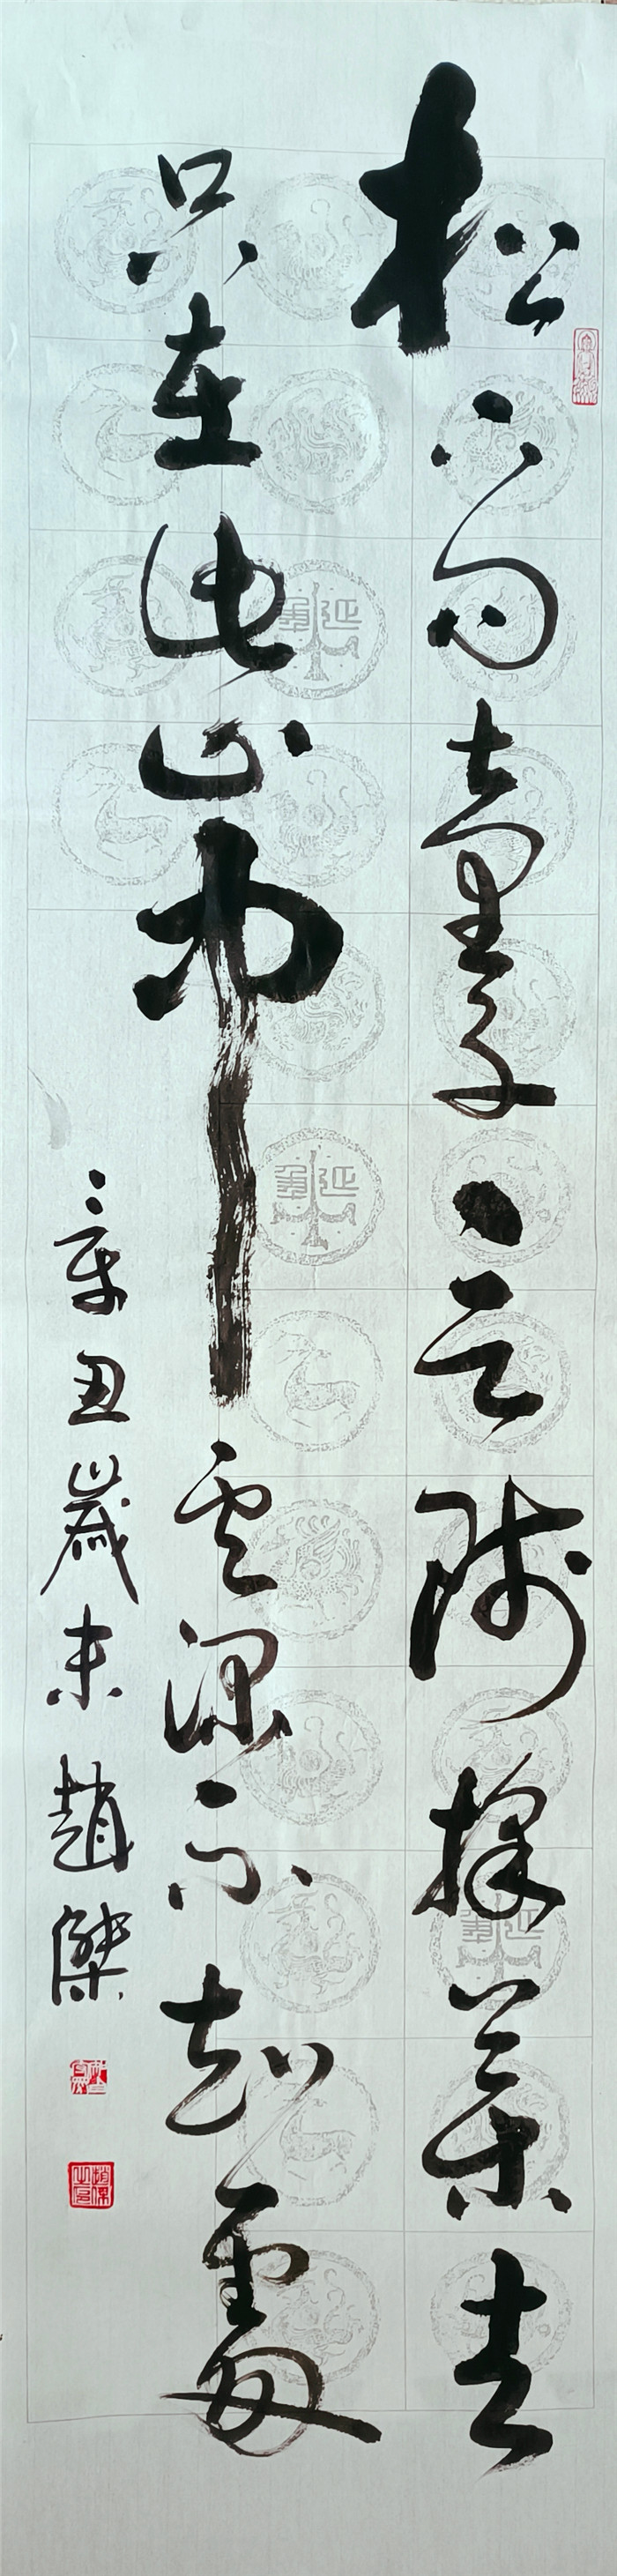 松下問童子言師採藥去
只在此山中雲深不知處
辛丑歲末趙傑